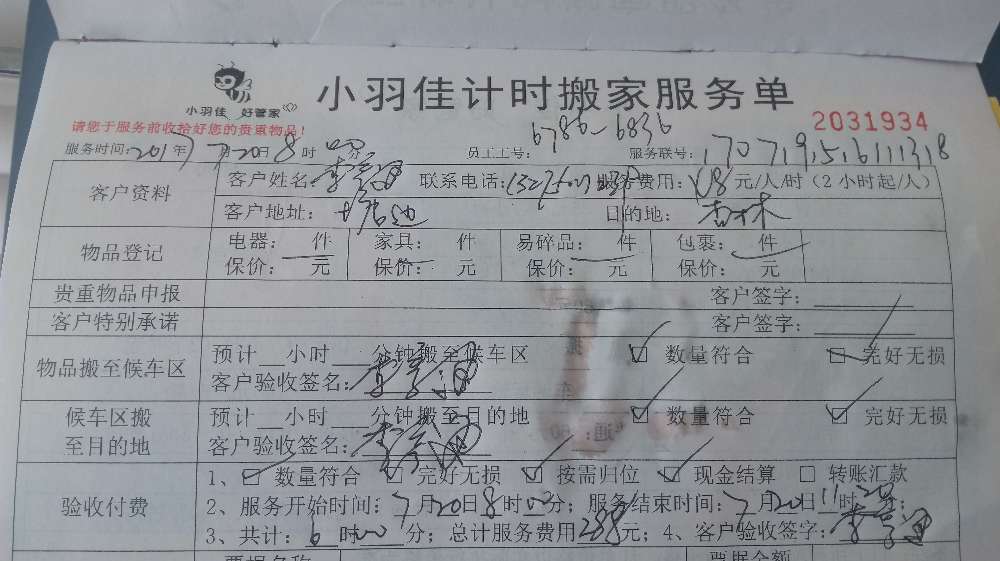 小羽佳 好管家
小羽佳计时搬家服务单
请您于服务前收拾好您的贵重物品！
2031934
服务时间：2017年7月20日8时 分 员工工号：6786-6836 服务联号：
客户资料 客户姓名： 联系电话： 服务费用：48元/人/时（2小时起/人）
客户地址： 目的地：杏林
物品登记 电器： 件 家具： 件 易碎品： 件 包裹： 件
保价： 元 保价： 元 保价： 元 保价： 元
贵重物品申报 客户签字：
客户特别承诺 客户签字：
物品搬至候车区 预计 小时 分钟搬至候车区 数量符合 完好无损
客户验收签名：
候车区搬至目的地 预计 小时 分钟搬至目的地 数量符合 完好无损
客户验收签名：
验收付费 1、 数量符合 完好无损 按需归位 现金结算 转账汇款
2、服务开始时间：7月20日8时00分；服务结束时间：7月20日11时
3、共计：6时00分；总计服务费用288元；4、客户验收签字：
票据名称 票据金额